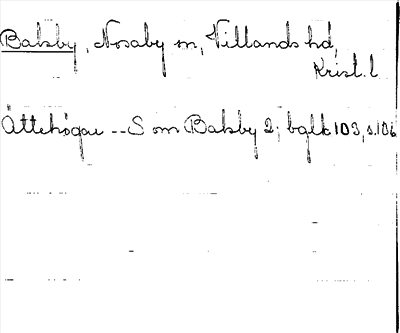 Balsby, Nosaby sn, Villands hd,
Krist. l
Ättehögar -- S om Balsby 2; bglt 103, s. 106